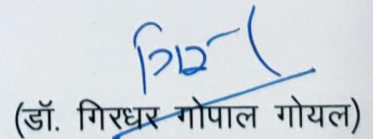 (डॉ. गिरधर गोपाल गोयल)